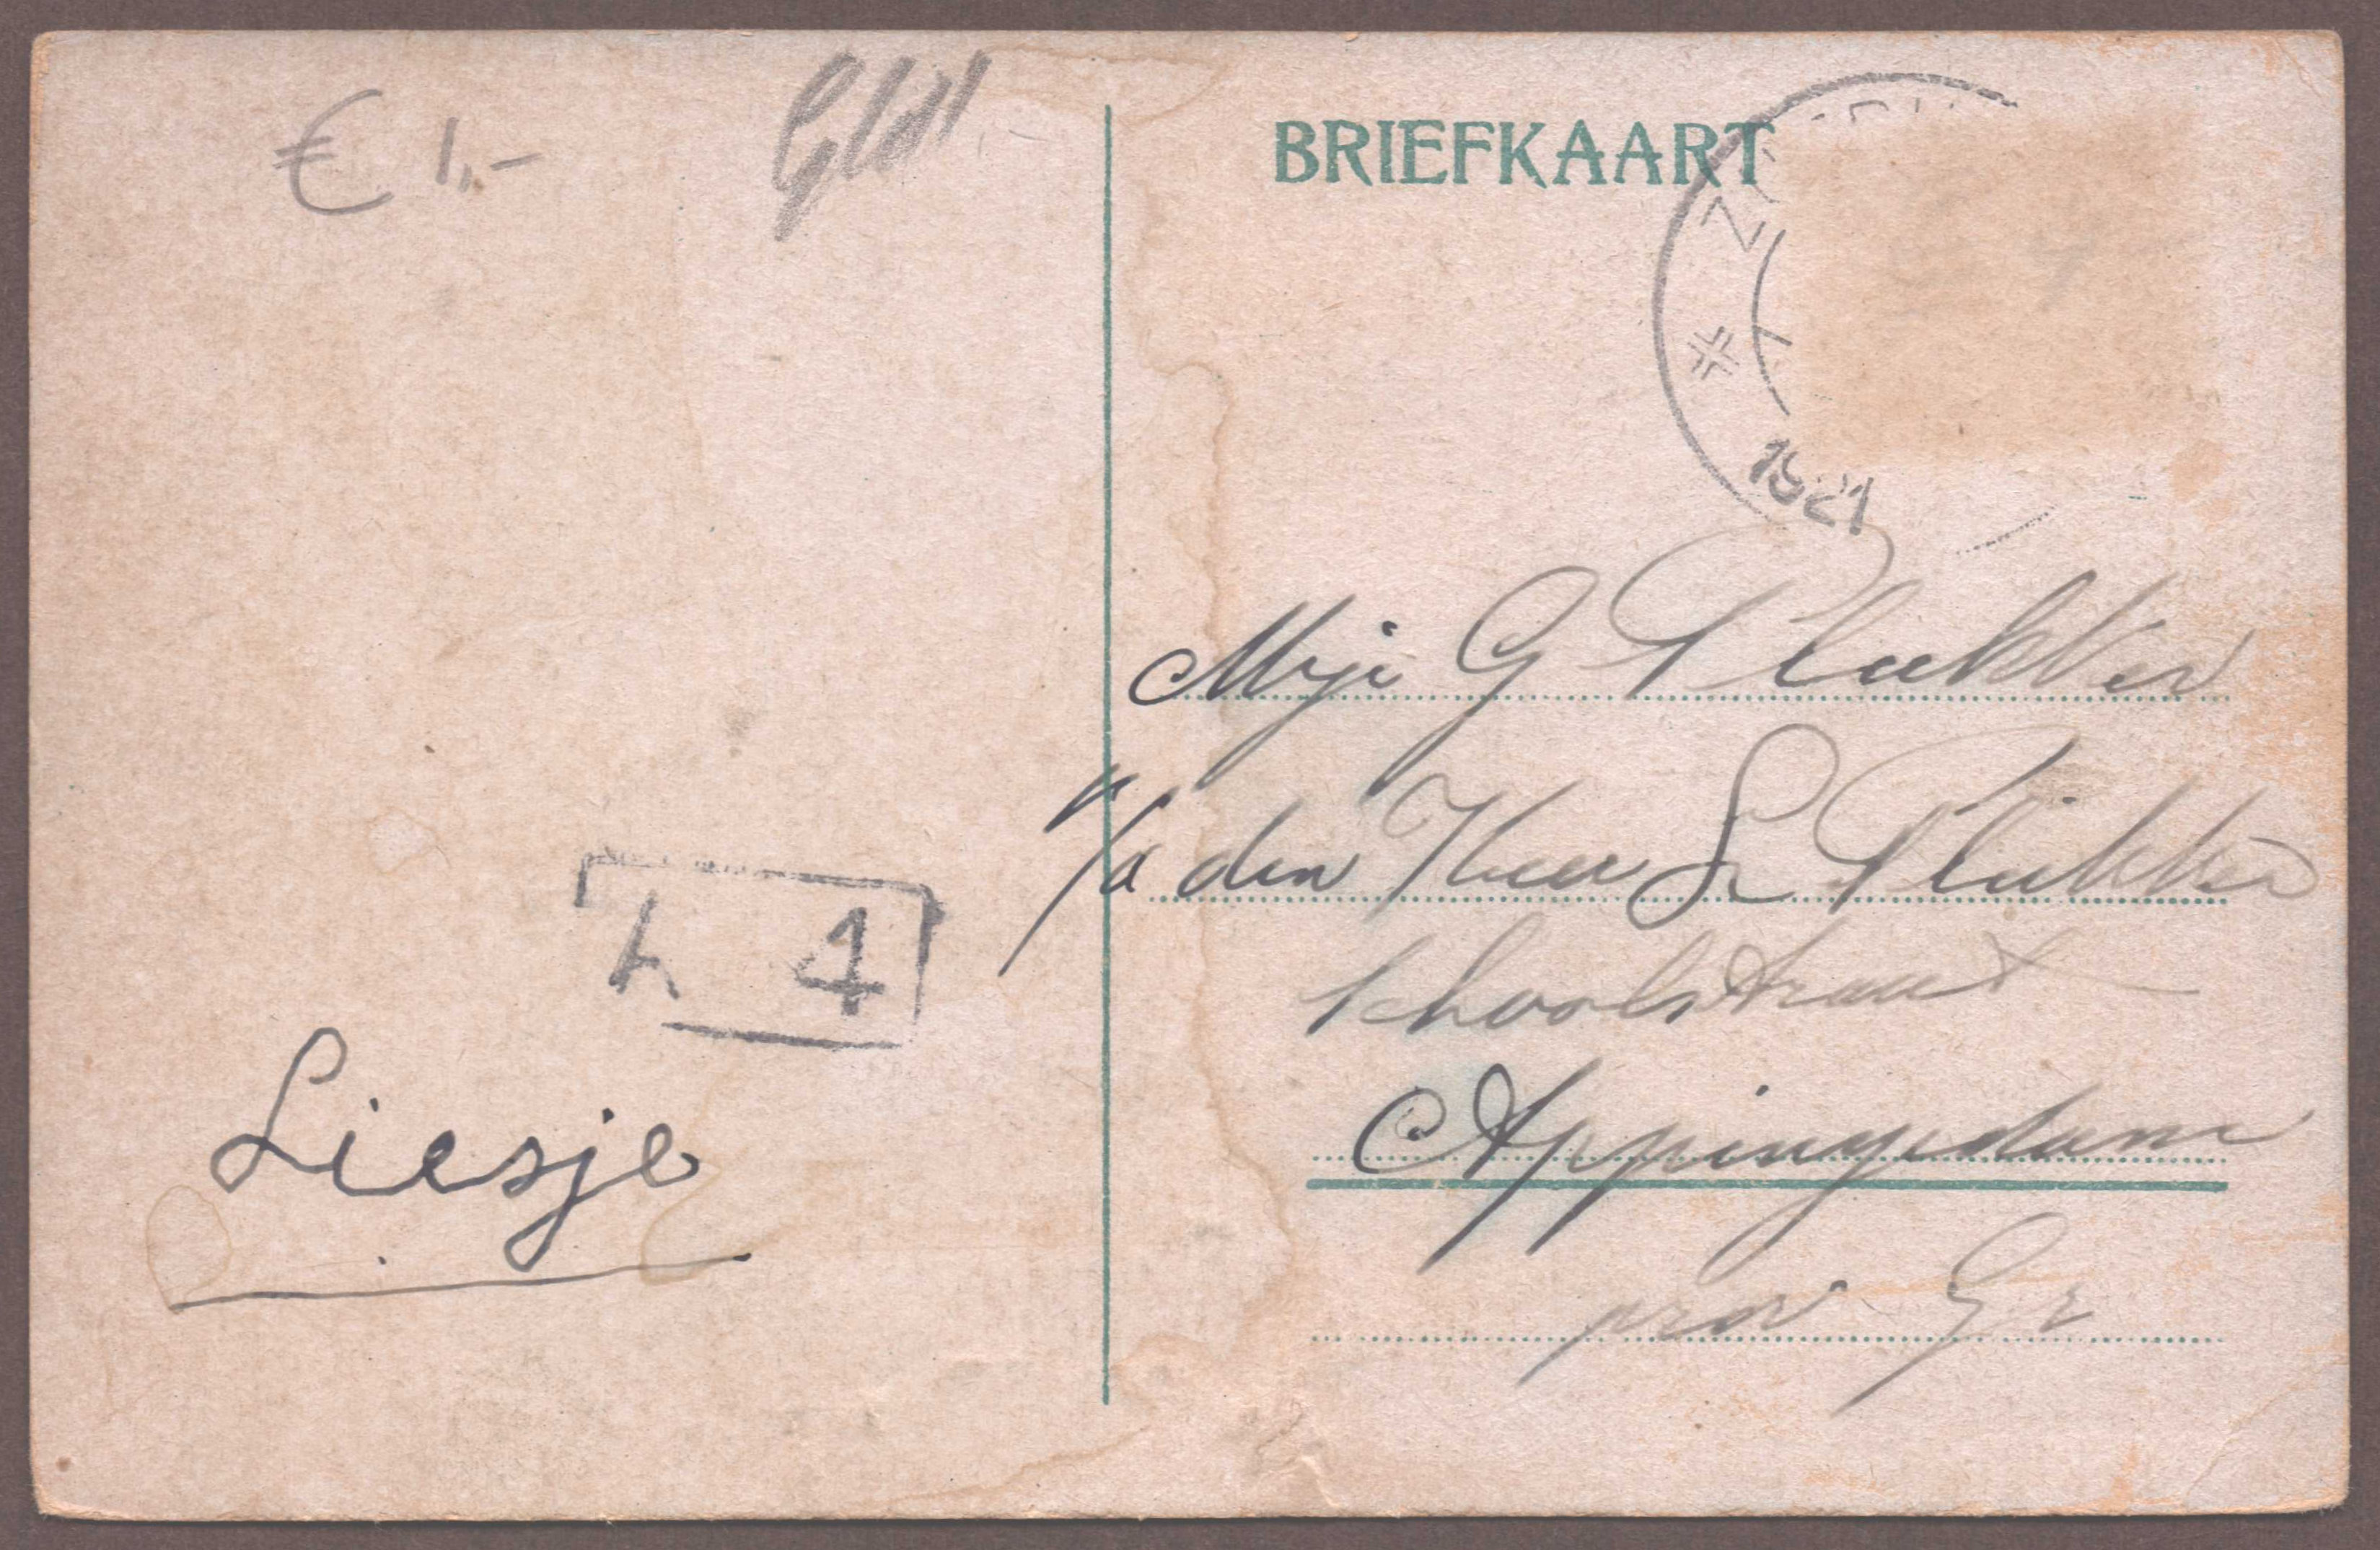 € 1,-
BRIEFKAART
1921
Mej. G Plukker
p/a den Heer S Plukker
Schoolstraat
Appingedam
prov Gr
4
Liesje